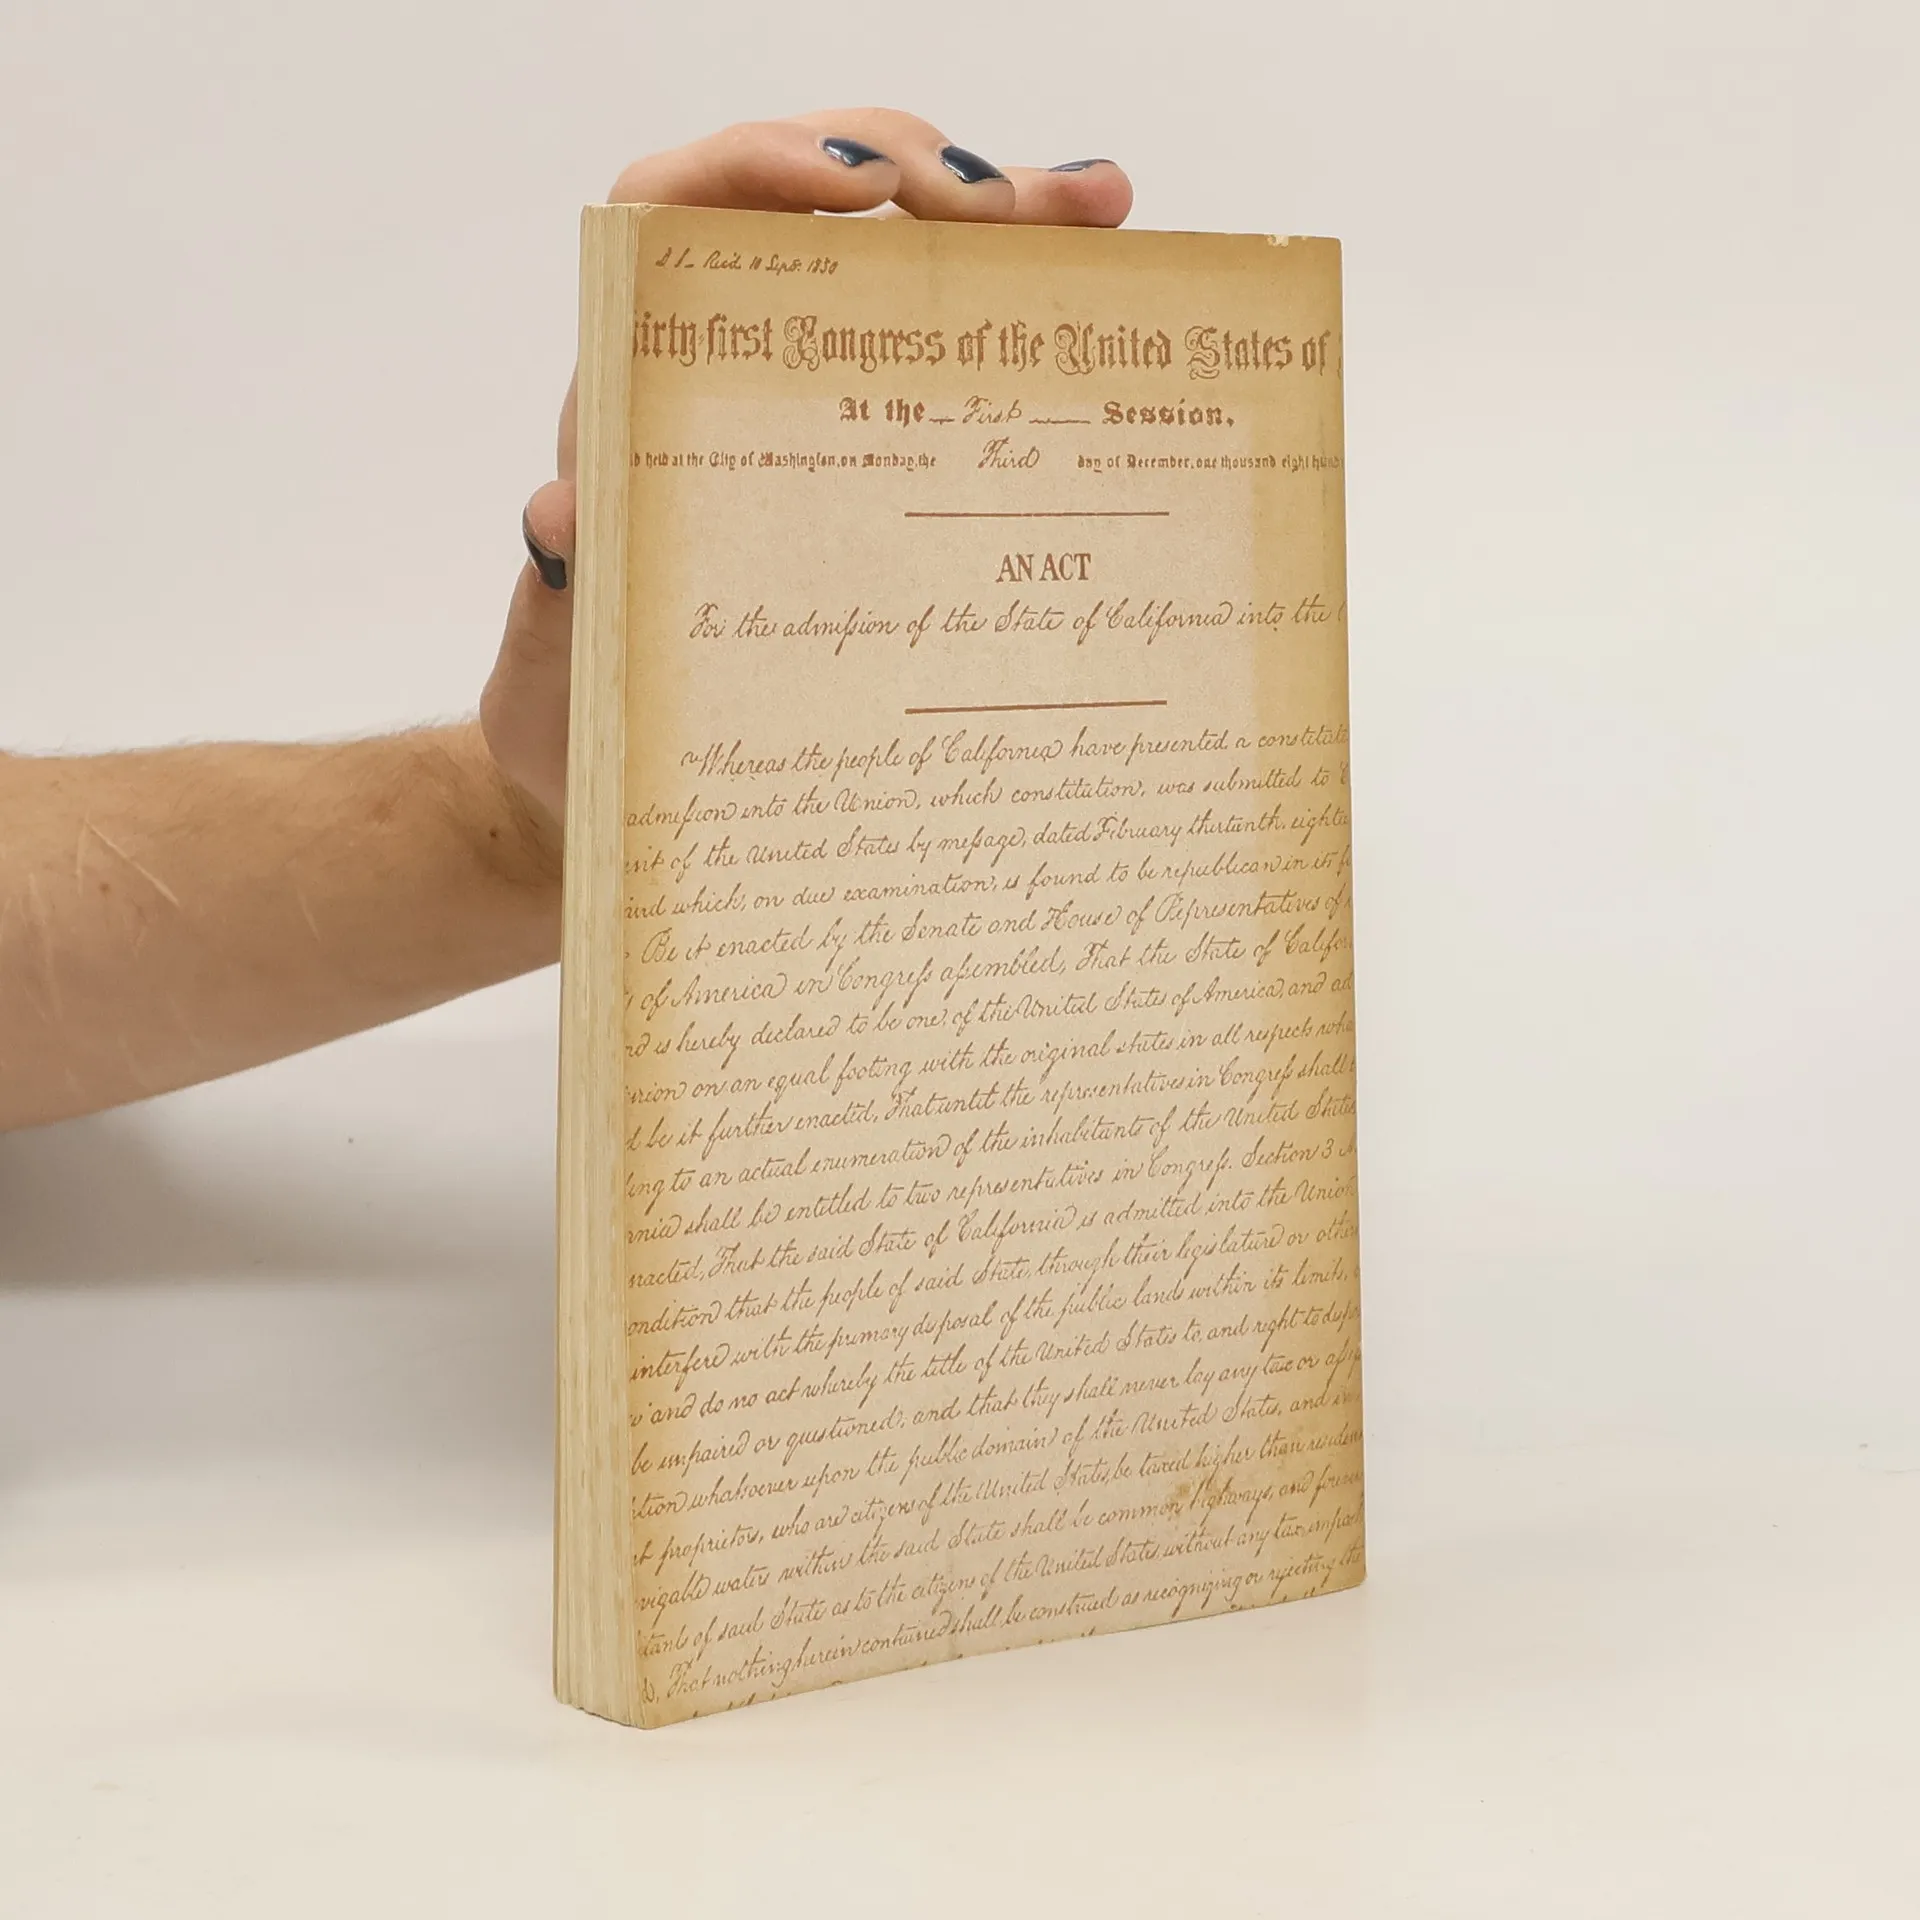 Rec'd 10 Sept. 1850
irty-first Congress of the United States of
At the First Session,
held at the City of Washington, on Monday, the Third day of December, one thousand eight hund
AN ACT
For the admission of the State of California into the
Whereas the people of California have presented a constituti
admission into the Union, which constitution, was submitted to C
ent of the United States by message, dated February thirteenth, eightee
and which, on due examination, is found to be republican in its f
Be it enacted by the Senate and House of Representatives of
of America in Congress assembled, That the State of Califor
nd is hereby declared to be one, of the United States of America, and ad
nion on an equal footing with the original states in all respects wha
d be it further enacted, That until the representatives in Congress shall
ing to an actual enumeration of the inhabitants of the United States
rnia shall be entitled to two representatives in Congress. Section 3
nacted, That the said State of California is admitted into the Union
ondition that the people of said State, through their legislature or other
interfere with the primary disposal of the public lands within its limits,
and do no act whereby the title of the United States to, and right to disp
be impaired or questioned; and that they shall never lay any tax or asse
tion whatsoever upon the public domain of the United States, and in
nt proprietors, who are citizens of the United States, be taxed higher than residen
vigable waters within the said State shall be common highways, and forever
itants of said State as to the citizens of the United States, without any tax, impost
That nothing herein contained shall be construed as recognizing or rejecting the